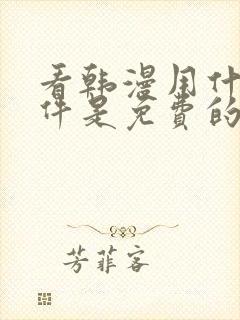 看韩漫用什
件是免費的
芳菲客